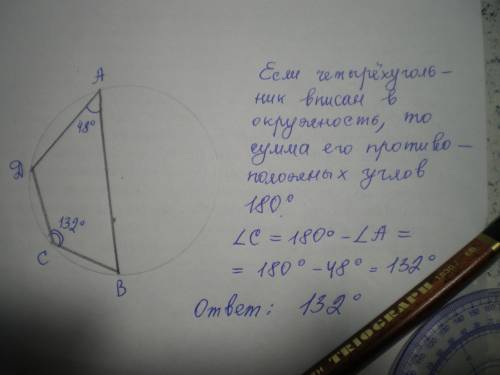 A
48°
D
132°
C
B
Если четырёхуголь-
ник вписан в
окружность, то
сумма его противо-
положных углов
180°.
∠C = 180° - ∠A =
= 180° - 48° = 132°
Ответ: 132°
TRIOGRAPH